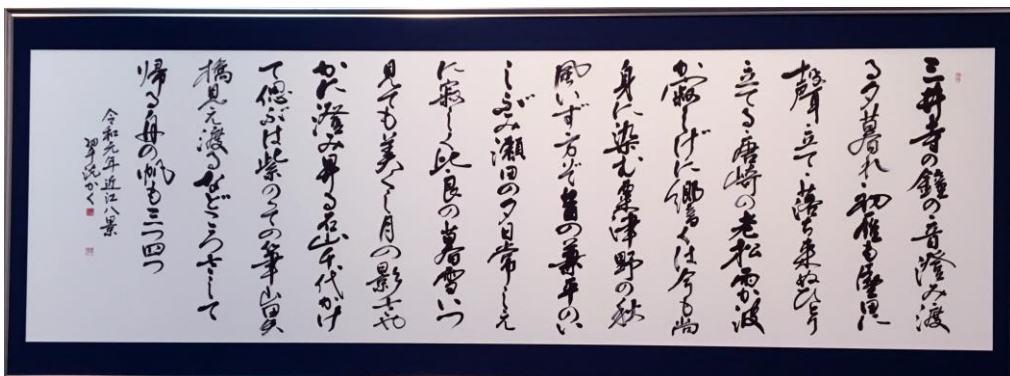 三井寺の鐘の音澄み渡
る夕暮れ初雁も堅田に
聲立て落ち来ぬひとり
立てる唐崎の老松雨か波
か寂しげに響くは今も尚
身に染む粟津野の秋
風いず方ぞ昔の兼平のい
しぶみ瀬田の夕日常しえ
に寂し比良の暮雪いつ
見ても美くし月の影さや
かに澄み昇る石山千代かけ
て偲ぶは紫の の筆山
橋見え渡るなどころさして
帰る舟の帆も三つ四つ
令和元年近江八景
かく